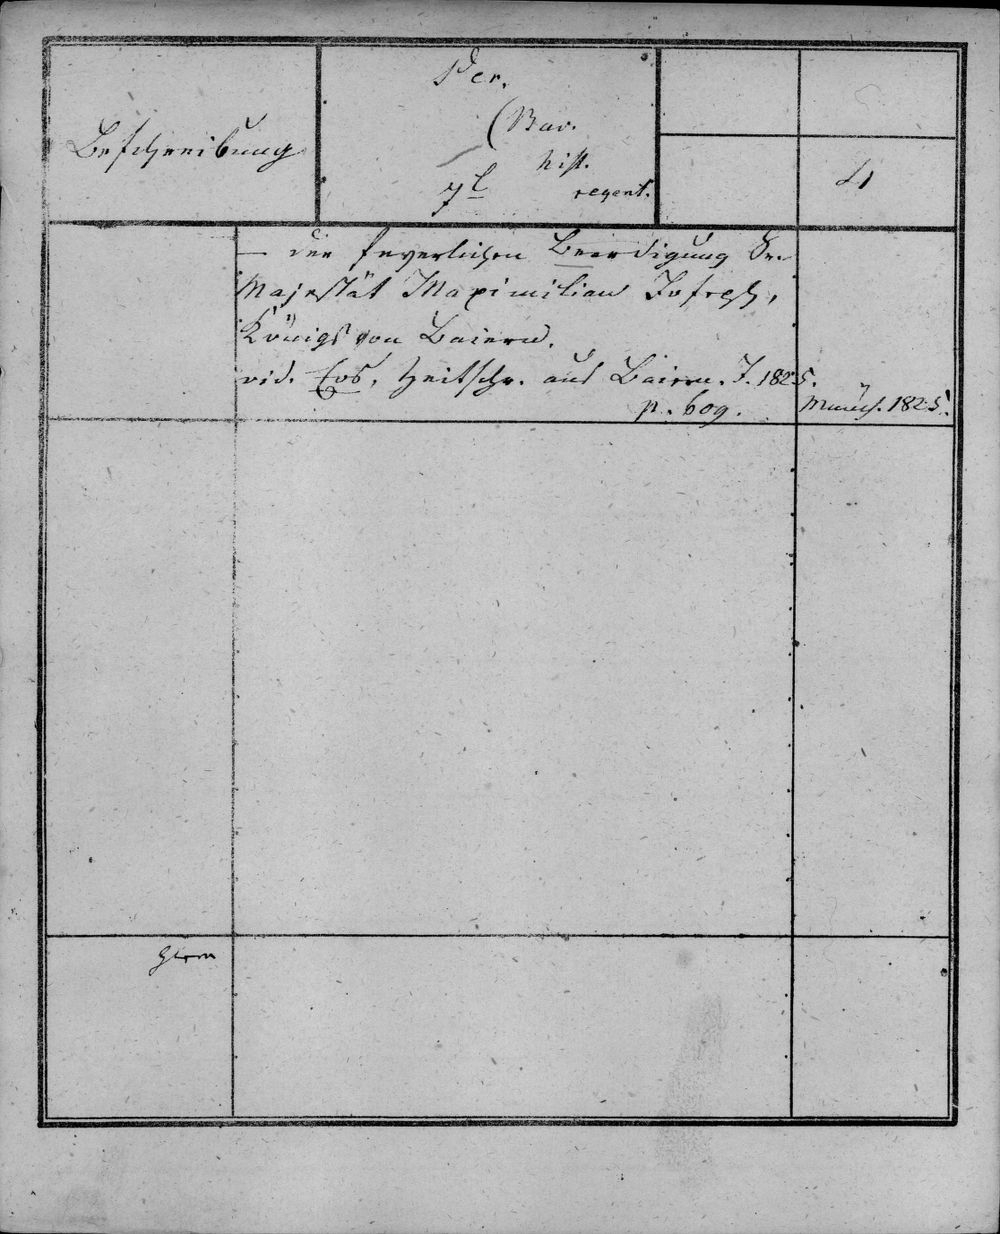 Beschreibung
Per.
(Bav.
hist.
regent.
4
— der feyerlichen Beerdigung Sr.
Majestät Maximilian Joseph,
Königs von Baiern.
vid. Eos, Zeitschr. aus Baiern. J. 1825.
p. 609.
Münch. 1825.